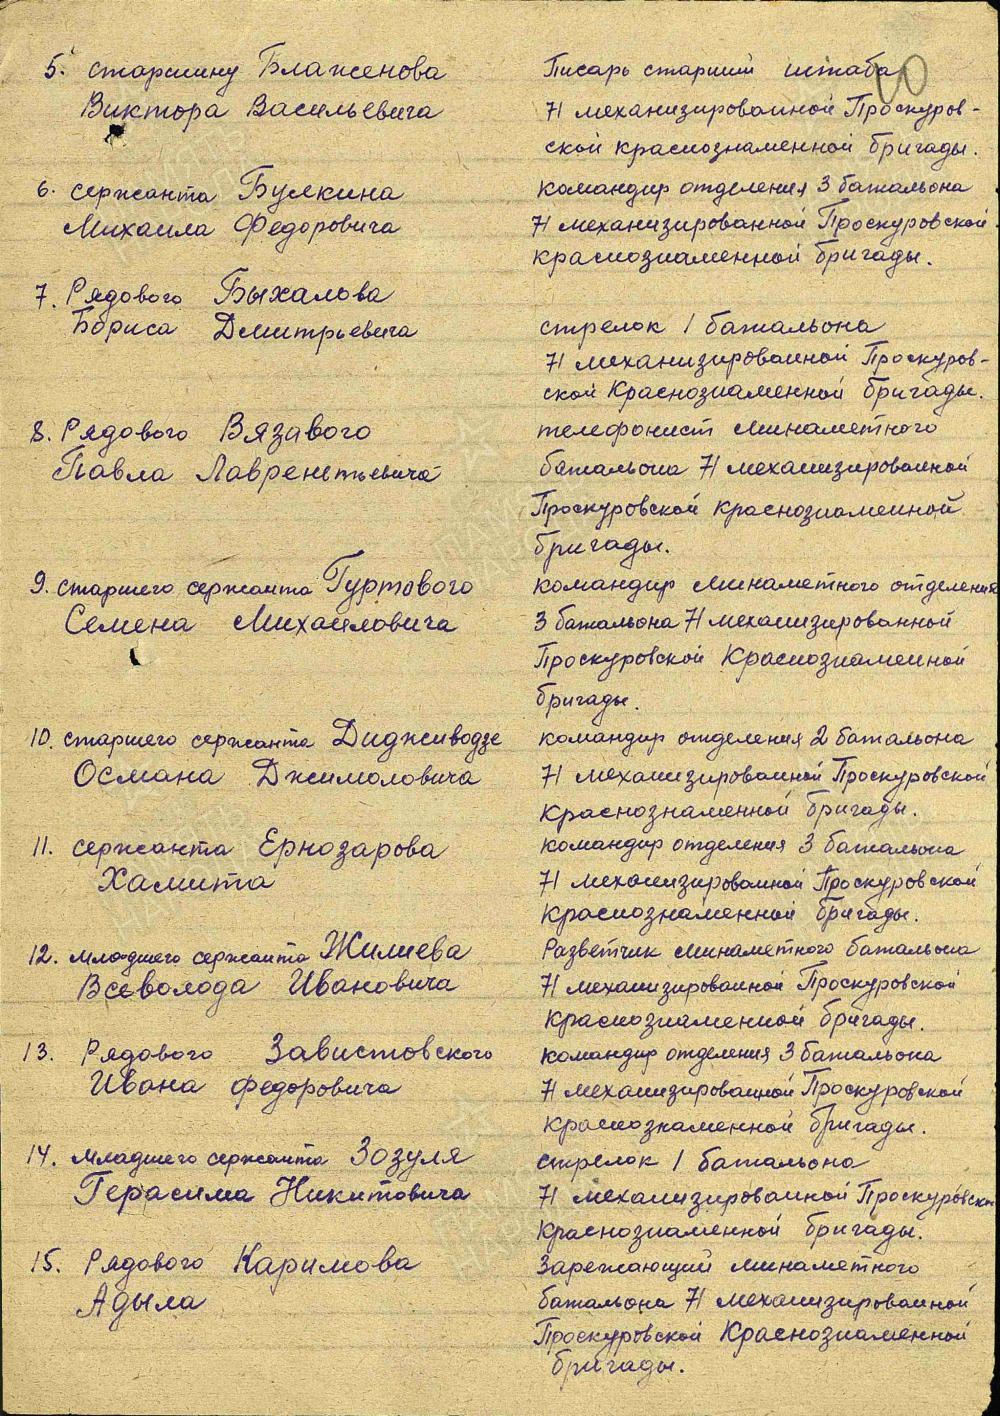 5. старшину Блаженова
Виктора Васильевича
Писарь старший штаба
71 механизированной Проскуров-
ской краснознаменной бригады.
6. сержанта Булкина
Михаила Федоровича
командир отделения 3 батальона
71 механизированной Проскуровской
краснознаменной бригады.
7. Рядового Быхалова
Бориса Дмитрьевича
стрелок 1 батальона
71 механизированной Проскуров-
ской Краснознаменной бригады.
8. Рядового Вязавого
Павла Лаврентьевича
телефонист минаметного
батальона 71 механизированной
Проскуровской краснознаменной
бригады.
9. старшего сержанта Гуртового
Семена Михайловича
командир минаметного отделения
3 батальона 71 механизированной
Проскуровской Краснознаменной
бригады.
10. старшего сержанта Дидживодзе
Османа Джимоловича
командир отделения 2 батальона
71 механизированной Проскуровской
краснознаменной бригады.
11. сержанта Ернозарова
Хамита
командир отделения 3 батальона
71 механизированной Проскуровской
краснознаменной бригады.
12. младшего сержанта Жилиева
Всеволода Ивановича
Разветчик минаметного батальона
71 механизированной Проскуровской
краснознаменной бригады.
13. Рядового Завистовского
Ивана Федоровича
командир отделения 3 батальона
71 механизированной Проскуровской
краснознаменной бригады.
14. младшего сержанта Зозуля
Герасима Никитовича
стрелок 1 батальона
71 механизированной Проскуровской
краснознаменной бригады.
15. Рядового Каримова
Адыла
Зарежающий минаметного
батальона 71 механизированной
Проскуровской Краснознаменной
бригады.